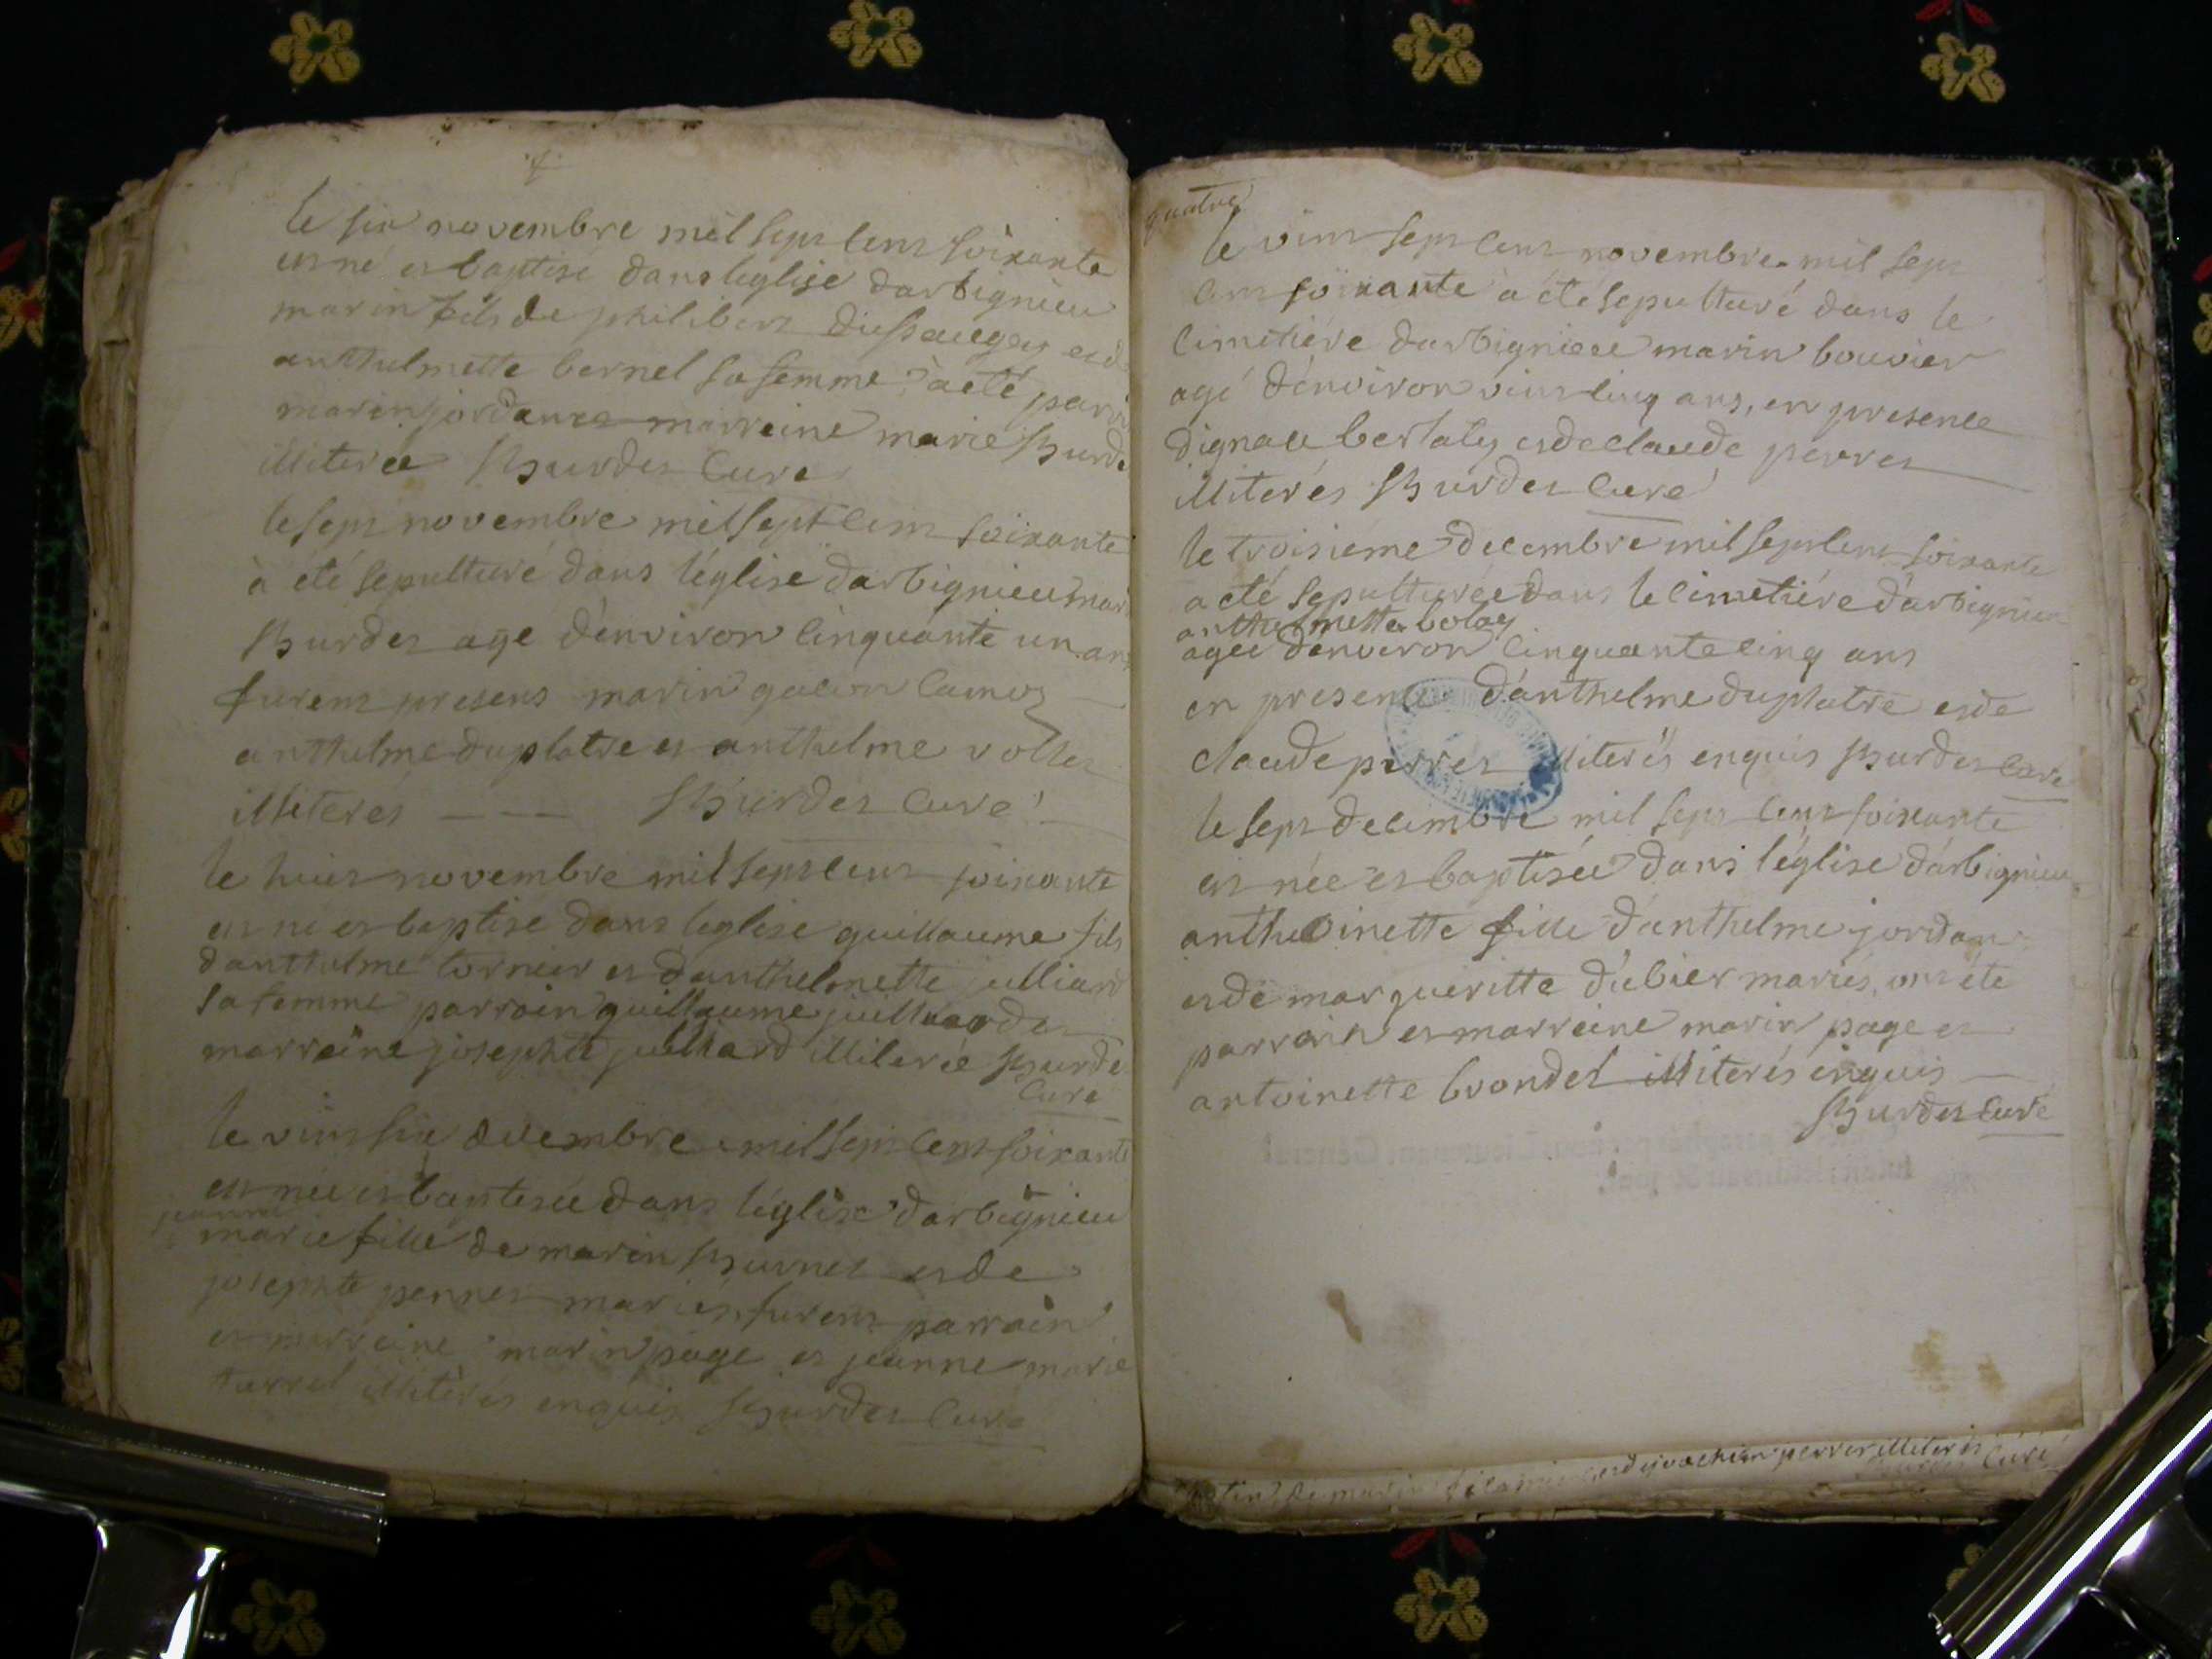 le six novembre mil sept cent soixante
est né et baptisé dans leglise darbignieu
marin fils de philibert dupaugey et d
anthelmette bernel sa femme à eté parr
marin jordan et marreine marie Burde
illiteree Burdet Curé
le sept novembre mil sept cent soixante
à été sepulturé dans léglise darbignieu mar
Burdet age d'environ cinquante un ans
furent presens marin
anthelme duplatre et anthelme vollet
illiterés Burdet Curé
le huit novembre mil sept cent soixante
est né et baptise dans leglise guillaume fils
danthelme tornier et danthelmette julliard
sa femme parrain guillaume juilliard et
marreine josephte julliard illiterée Burde
Curé
le vint six novembre mil sept cent soixante
est née et baptesée dans léglise darbignieu
jeanne
marie fille de marin Burnet et de
josephte pernet mariés furent parrain
et marreine marin page et jeanne marie
turrel illiterés enquis Burdet Curé
quatre
le vint sept novembre mil sept
cent soixante à été sepulturé dans le
cimetiére darbignieu marin bouvier
agé d'environ vint cinq ans, en presence
dignace berlaty et de claude perret
illiterés Burdet Curé
le troisieme decembre mil sept cent soixante
a eté sepulturée dans le cimetiére d'arbignieu
anthelmette bolay
agée d'environ cinquante cinq ans
en presence d'anthelme duplatre et de
claude perret illiterés enquis Burdet Curé
le sept decembre mil sept cent soixante
est née et baptisée dans l'église d'arbignieu
anthoinette fille d'anthelme jordan
et de margueritte dubier mariés, ont été
parrain et marreine marin page et
antoinette brondel illiterés enquis
Burdet Curé
de marin et de joachim perret illiterés
Burdet Curé